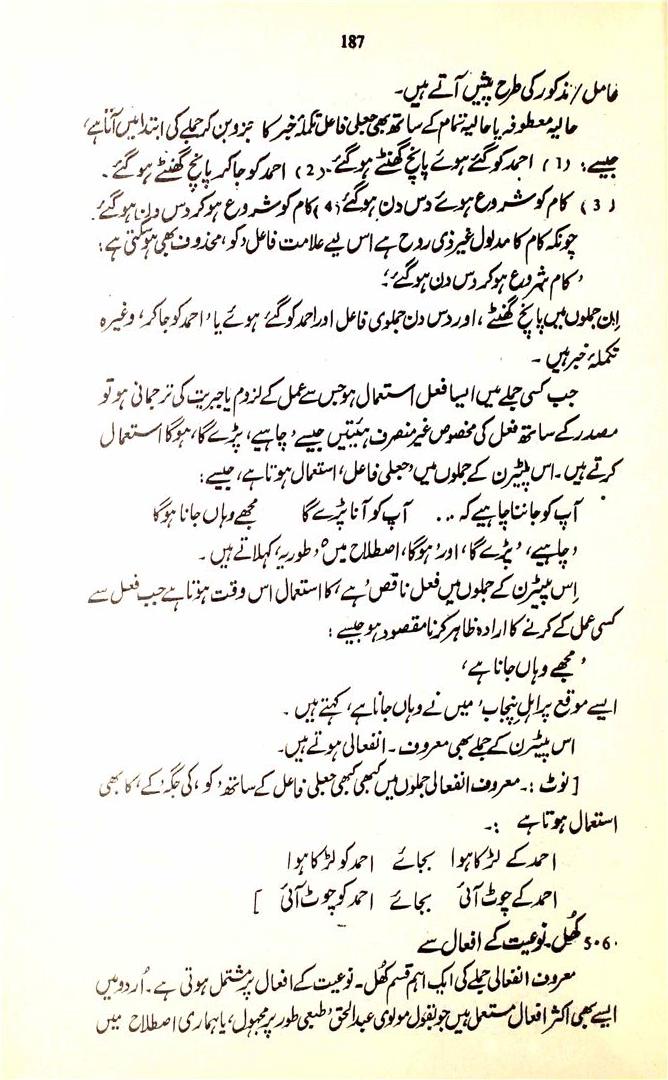 187
عامل / مذکور کی طرح پیش آتے ہیں۔
حالیہ معطوفہ یا حالیہ تمام کے ساتھ بھی جعلی فاعل تکملۂ خبر کا جزو بن کر جملے کی ابتدا میں آتا ہے،
جیسے: (1) احمد کو گئے ہوئے پانچ گھنٹے ہو گئے۔ (2) احمد کو جا کر پانچ گھنٹے ہو گئے۔
(3) کام کو شروع ہوئے دس دن ہو گئے (4) کام کو شروع ہو کر دس دن ہو گئے۔
چونکہ کام کا مدلول غیر ذی روح ہے اس لیے علامت فاعل ’کو‘ محذوف بھی ہو سکتی ہے:
’کام شروع ہو کر دس دن ہو گئے‘:
اِن جملوں میں پانچ گھنٹے، اور دس دن جملوی فاعل اور احمد کو گئے ہوئے یا ’احمد کو جا کر‘ وغیرہ
تکملۂ خبر ہیں۔
جب کسی جملے میں ایسا فعل استعمال ہو جس سے عمل کے لزوم یا جبریت کی ترجمانی ہو تو
مصدر کے ساتھ فعل کی مخصوص غیر منصرف ہئیتیں جیسے ’چاہیے، پڑے گا، ہوگا استعمال
کرتے ہیں۔ اس پیٹرن کے جملوں میں ’جعلی فاعل‘ استعمال ہوتا ہے، جیسے:
آپ کو جاننا چاہیے کہ ... آپ کو آنا پڑے گا مجھے وہاں جانا ہوگا
’چاہیے، ’پڑے گا، اور ’ہوگا، اصطلاح میں ’طوریہ‘ کہلاتے ہیں۔
اِس پیٹرن کے جملوں میں فعل ناقص ’ہے‘ کا استعمال اس وقت ہوتا ہے جب فعل سے
کسی عمل کے کرنے کا ارادہ ظاہر کرنا مقصود ہو جیسے:
’مجھے وہاں جانا ہے‘
ایسے موقع پر اہلِ پنجاب ’میں نے وہاں جانا ہے‘ کہتے ہیں۔
اس پیٹرن کے جملے بھی معروف۔ انفعالی ہوتے ہیں۔
[نوٹ :۔ معروف انفعالی جملوں میں کبھی کبھی جعلی فاعل کے ساتھ ’کو‘ کی جگہ ’کے‘ کا بھی
استعمال ہوتا ہے :۔
احمد کے لڑکا ہوا بجائے احمد کو لڑکا ہوا
احمد کے چوٹ آئی بجائے احمد کو چوٹ آئی ]
5.6۔ کُھل۔ نوعیت کے افعال سے
معروف انفعالی جملے کی ایک اہم قسم کُھل۔ نوعیت کے افعال پر مشتمل ہوتی ہے۔ اُردو میں
ایسے بھی اکثر افعال مستعمل ہیں جو بقول مولوی عبدالحق ’طبعی طور پر مجہول‘ یا ہماری اصطلاح میں